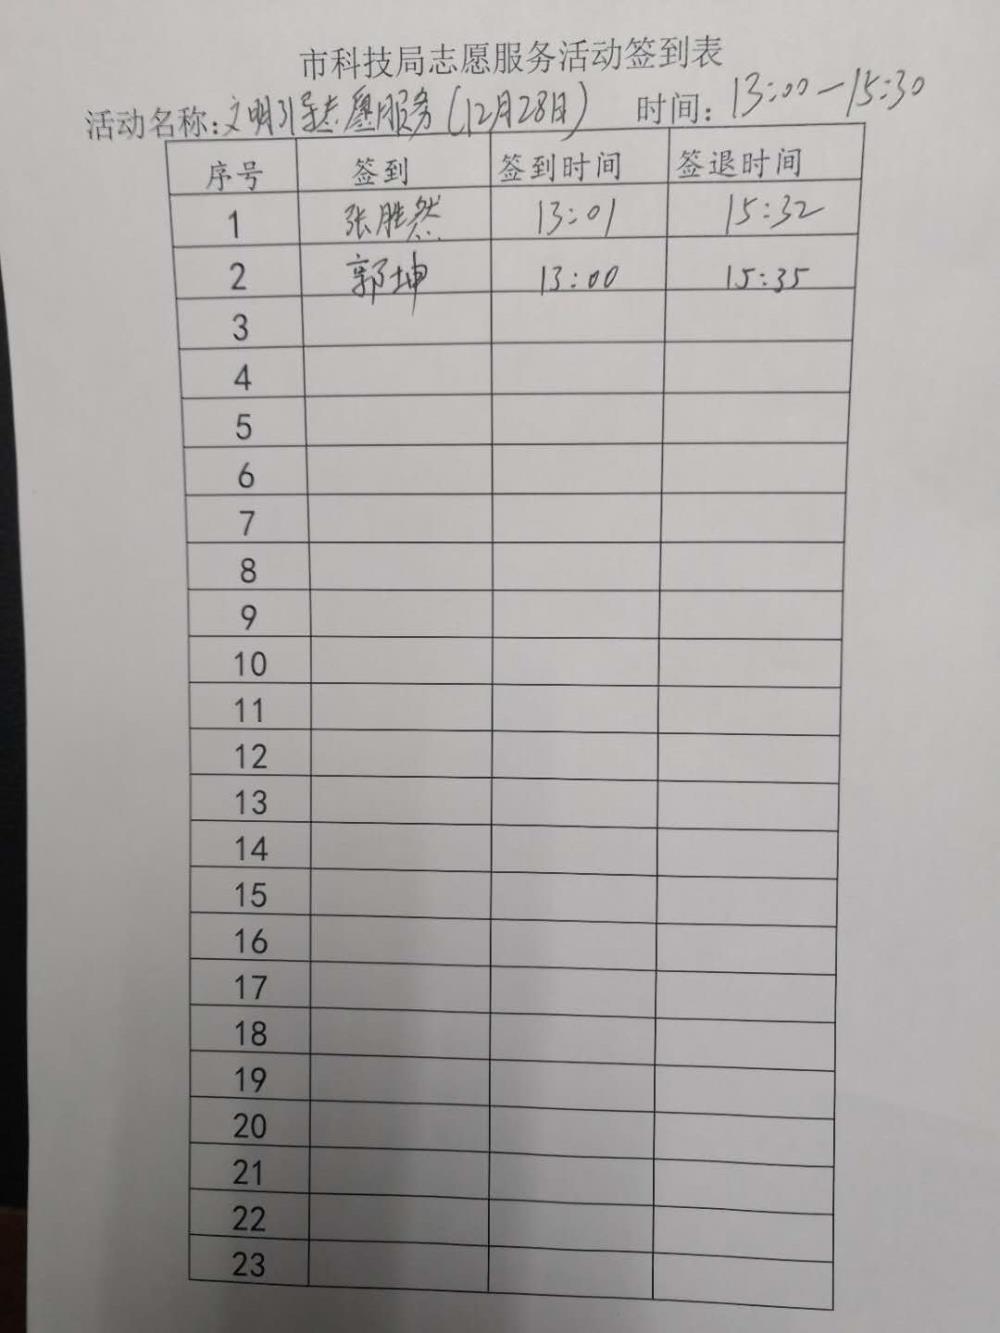 市科技局志愿服务活动签到表
活动名称:文明引导志愿服务(12月28日) 时间:13:00—15:30
序号 签到 签到时间 签退时间
1 张胜然 13:01 15:32
2 郭坤 13:00 15:35
3
4
5
6
7
8
9
10
11
12
13
14
15
16
17
18
19
20
21
22
23